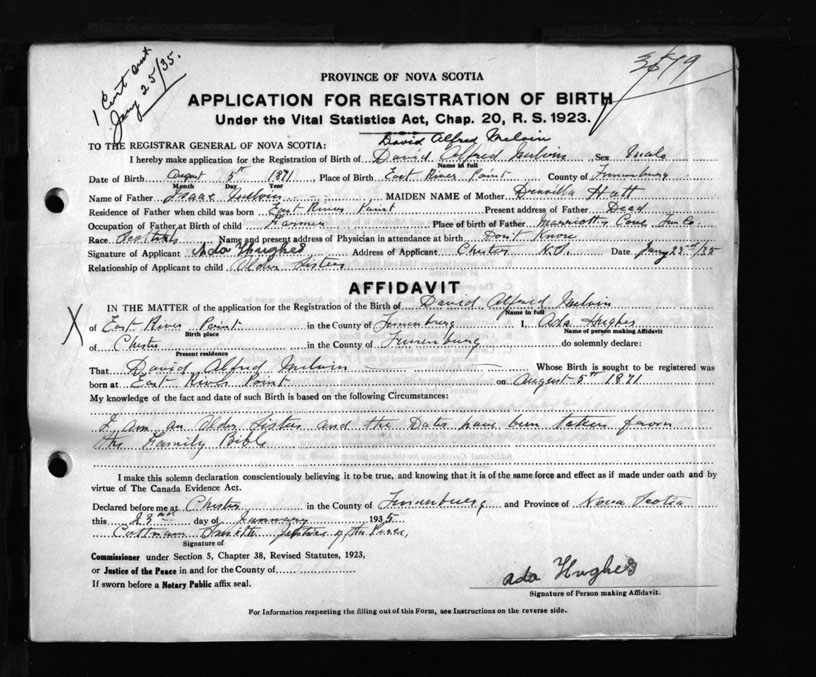 1 Cert sent
Jany 25/35.
PROVINCE OF NOVA SCOTIA
APPLICATION FOR REGISTRATION OF BIRTH
Under the Vital Statistics Act, Chap. 20, R. S. 1923.
David Alfred Melvin
TO THE REGISTRAR GENERAL OF NOVA SCOTIA:
I hereby make application for the Registration of Birth of David Alfred Melvin Sex Male
Name in full
Date of Birth August 5th 1871 Place of Birth East River Point County of Lunenburg
Month Day Year
Name of Father Isaac Melvin MAIDEN NAME of Mother Hatt
Residence of Father when child was born East River Point Present address of Father Dead
Occupation of Father at Birth of child Farmer Place of birth of Father Marriotts Cove
Race Name and present address of Physician in attendance at birth Don't Know
Signature of Applicant Ada Hughes Address of Applicant Chester N.S. Date Jany 23rd/35
Relationship of Applicant to child Older Sister
AFFIDAVIT
IN THE MATTER of the application for the Registration of the Birth of David Alfred Melvin
Name in full
of East River Point in the County of Lunenburg I, Ada Hughes
Birth place Name of person making Affidavit
of Chester in the County of Lunenburg do solemnly declare:
Present residence
That David Alfred Melvin Whose Birth is sought to be registered was
born at East River Point on August 5th 1871
My knowledge of the fact and date of such Birth is based on the following Circumstances:
I am an Older Sister and the Dates have been taken from
the Family Bible
I make this solemn declaration conscientiously believing it to be true, and knowing that it is of the same force and effect as if made under oath and by
virtue of The Canada Evidence Act.
Declared before me at Chester in the County of Lunenburg and Province of Nova Scotia
this 23rd day of January 1935
Smith Justice of the Peace,
Signature of
Commissioner under Section 5, Chapter 38, Revised Statutes, 1923,
or Justice of the Peace in and for the County of
If sworn before a Notary Public affix seal.
Ada Hughes
Signature of Person making Affidavit.
For Information respecting the filling out of this Form, see Instructions on the reverse side.